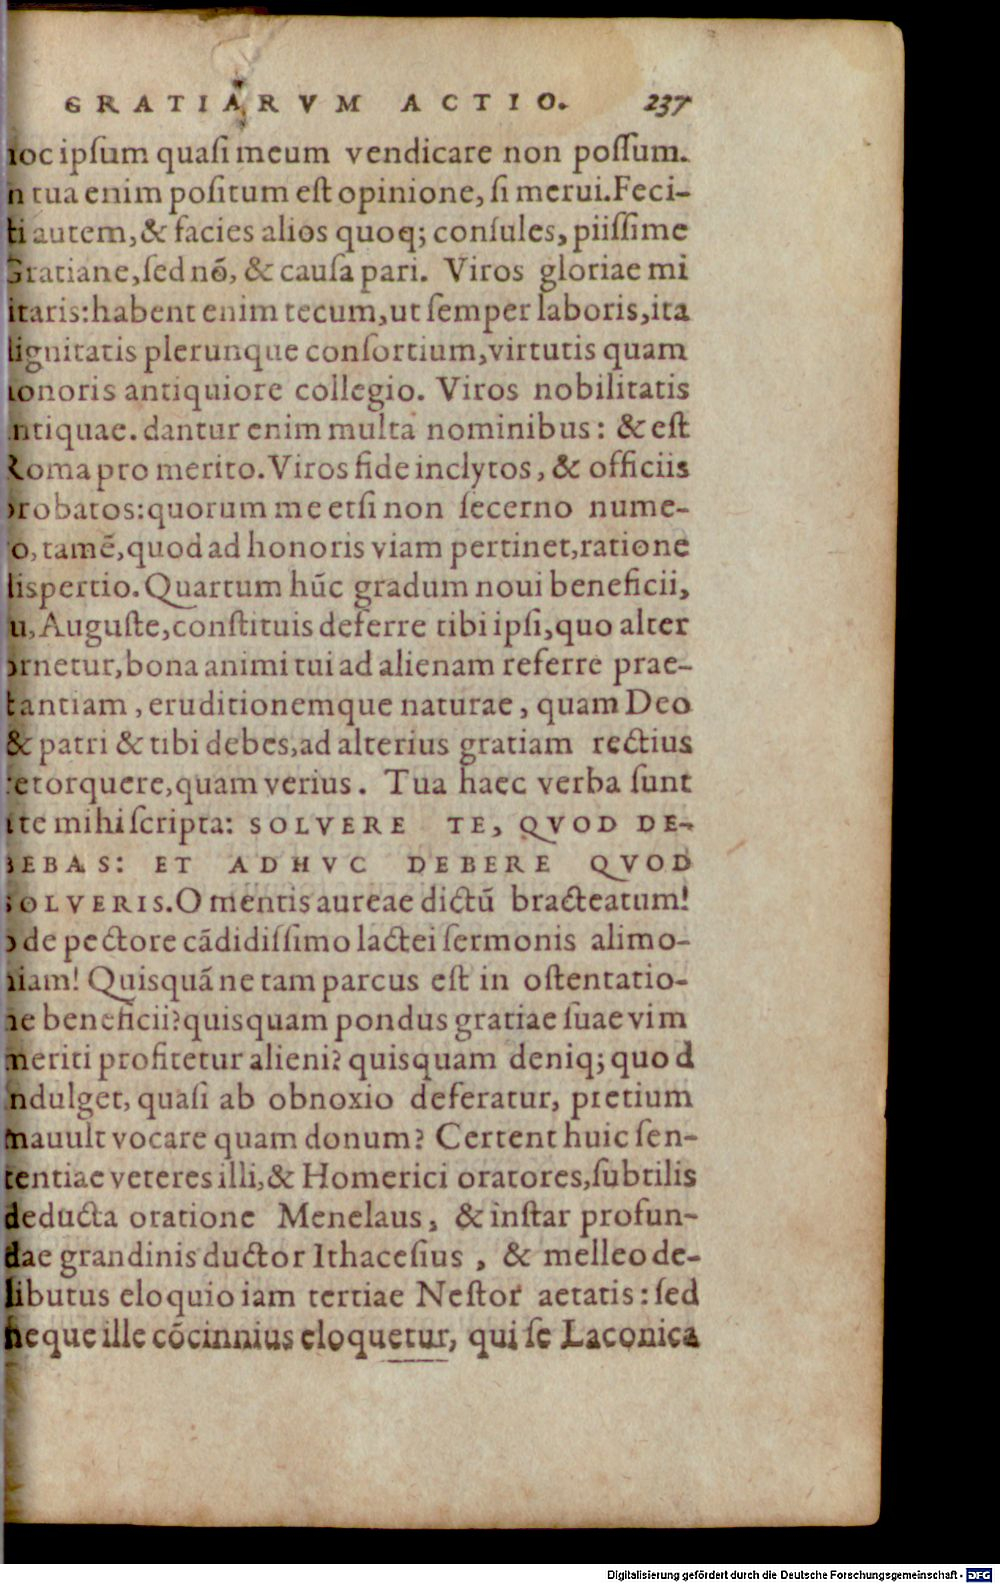 GRATIARVM ACTIO. 237
hoc ipſum quaſi meum vendicare non poſſum.
n tua enim poſitum eſt opinione, ſi merui. Feci-
ti autem, & facies alios quoq; conſules, piiſſime
Gratiane, ſed nō, & cauſa pari. Viros gloriae mi
itaris: habent enim tecum, ut ſemper laboris, ita
dignitatis plerunque conſortium, virtutis quam
honoris antiquiore collegio. Viros nobilitatis
ntiquae. dantur enim multa nominibus: & eſt
Roma pro merito. Viros fide inclytos, & officiis
probatos: quorum me etſi non ſecerno nume-
ro, tamē, quod ad honoris viam pertinet, ratione
diſpertio. Quartum hūc gradum noui beneficii,
u, Auguſte, conſtituis deferre tibi ipſi, quo alter
ornetur, bona animi tui ad alienam referre prae-
tantiam, eruditionemque naturae, quam Deo
& patri & tibi debes, ad alterius gratiam rectius
retorquere, quam verius. Tua haec verba ſunt
a te mihi ſcripta: SOLVERE TE, QVOD DE-
BEBAS: ET ADHVC DEBERE QVOD
SOLVERIS. O mentis aureae dictū bracteatum!
o de pectore cādidiſſimo lactei ſermonis alimo-
niam! Quiſquā ne tam parcus eſt in oſtentatio-
ne beneficii? quisquam pondus gratiae ſuae vim
meriti profitetur alieni? quisquam deniq; quod
indulget, quaſi ab obnoxio deferatur, pretium
mauult vocare quam donum? Certent huic ſen-
tentiae veteres illi, & Homerici oratores, ſubtilis
deducta oratione Menelaus, & inſtar profun-
dae grandinis ductor Ithaceſius, & melleo de-
libutus eloquio iam tertiae Neſtor aetatis: ſed
neque ille cōcinnius eloquetur, qui ſe Laconica
Digitalisierung gefördert durch die Deutsche Forschungsgemeinschaft - DFG